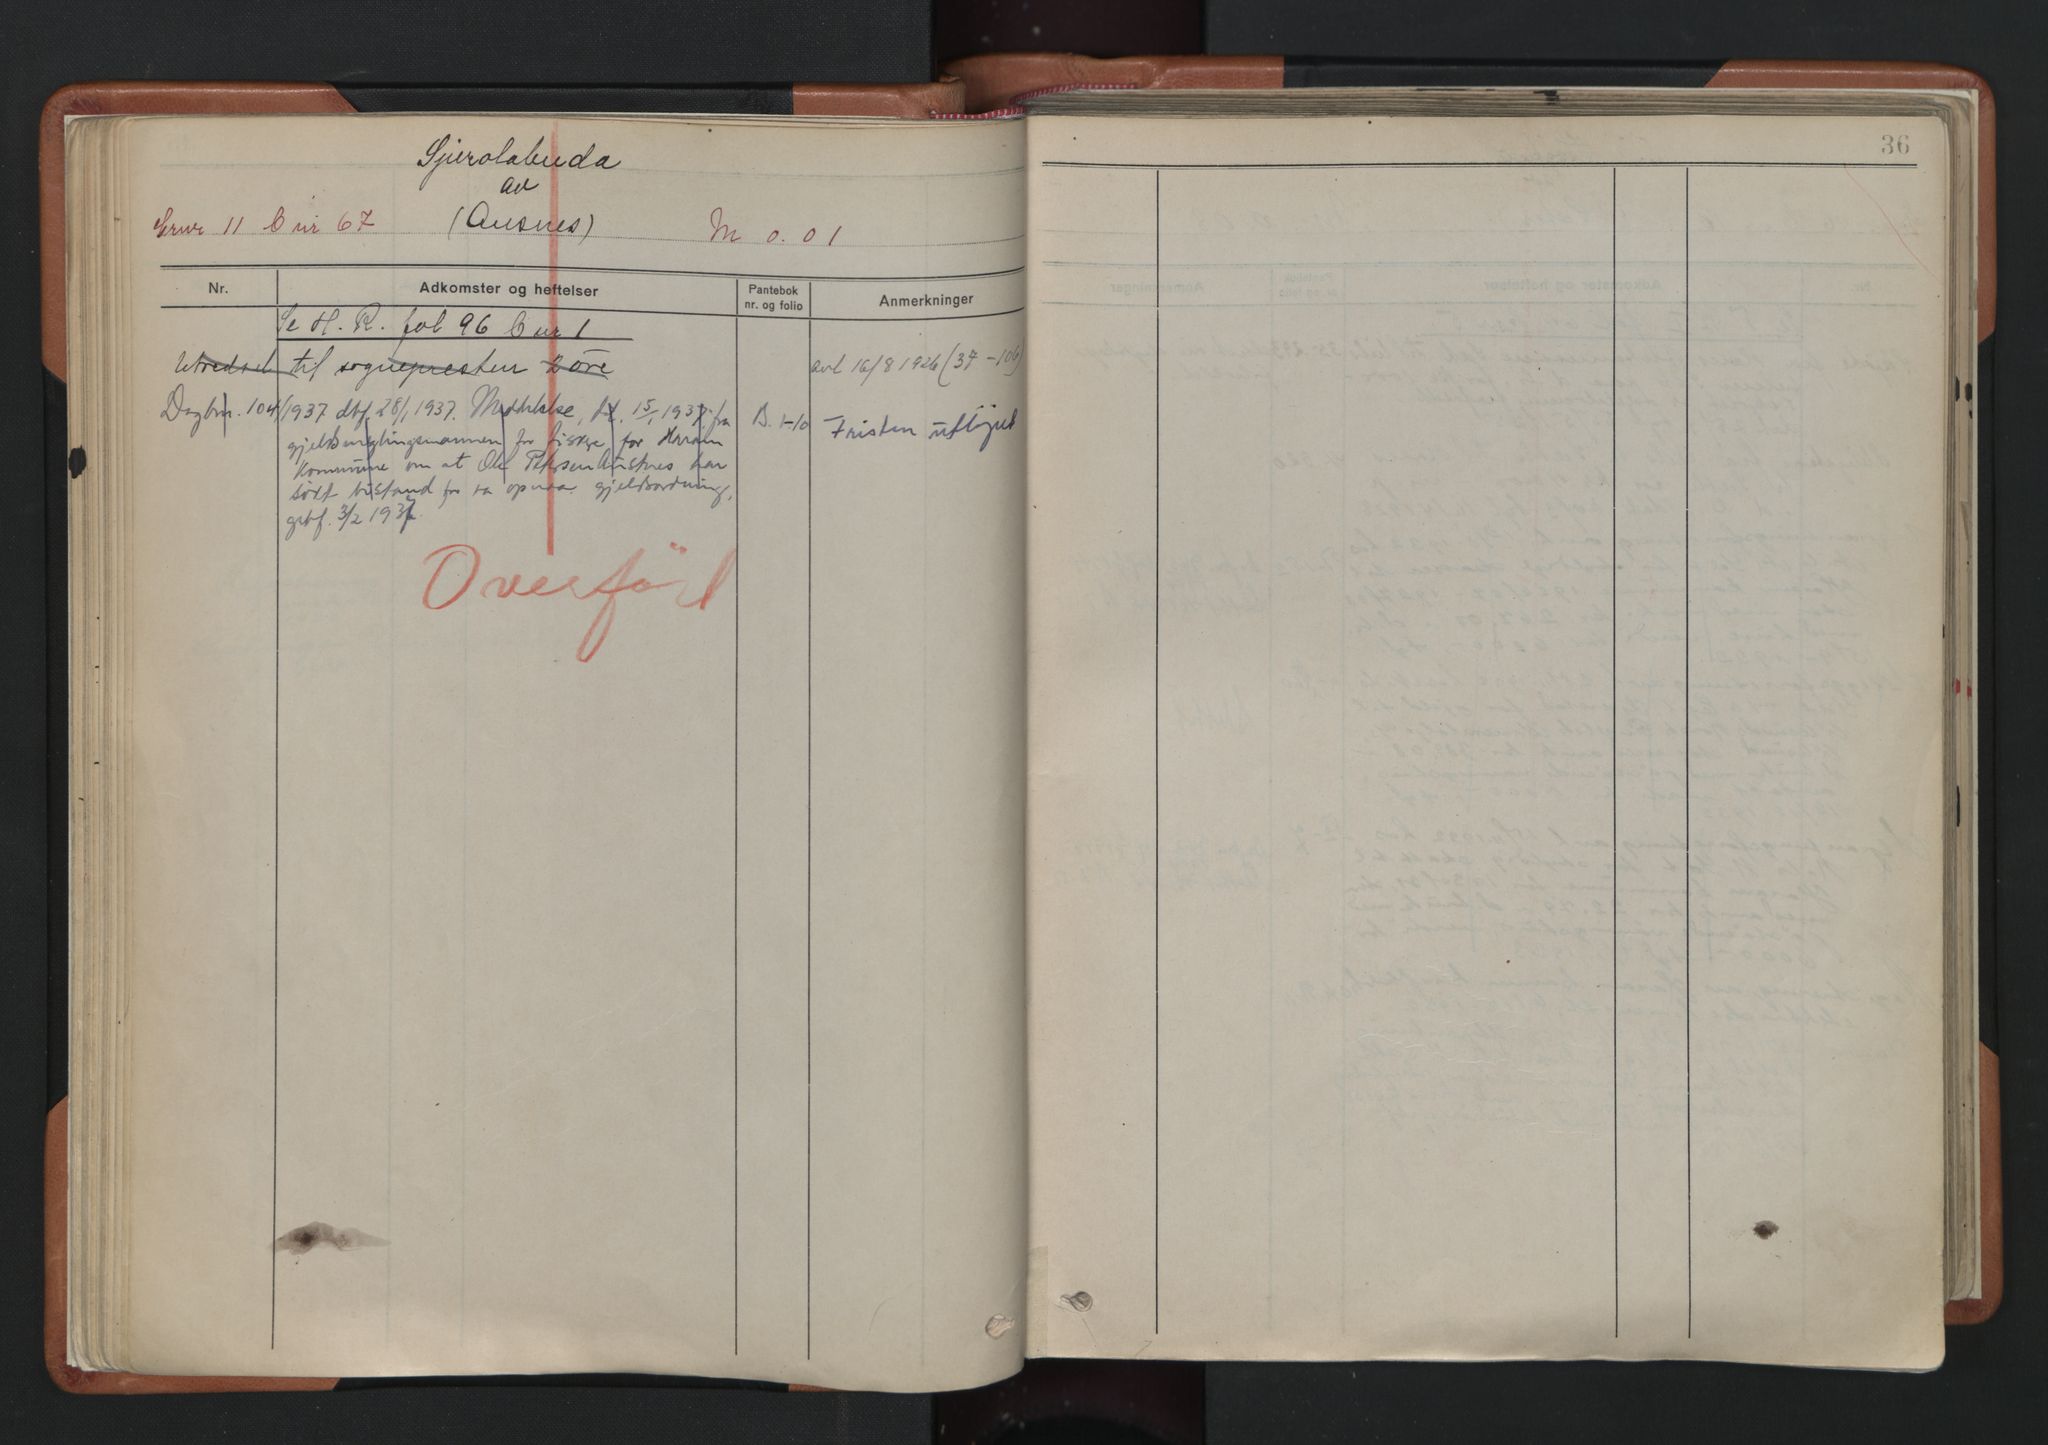 Sjurolabuda
av
Grnr 11 Bnr 67 (Ausnes) M 0.01
Nr.
Adkomster og heftelser
Pantebok
nr. og folio
Anmerkninger
Se H.R. fol 96 Bnr 1
til sognepresten 2 öre
avl 16/8 1926 (37-106)
Dagbnr. 104/1937 dbf. 28/1 1937. Meddelelse, dat. 15/1 1937 fra
B. 1-10
Fristen utløpet
gjeldsmeglingsmannen for fiskere for Haram
Kommune om at Ole Petersen Austnes har
søkt bistand for å oppnå gjeldsordning,
grbf. 3/2 1937.
Overført
36